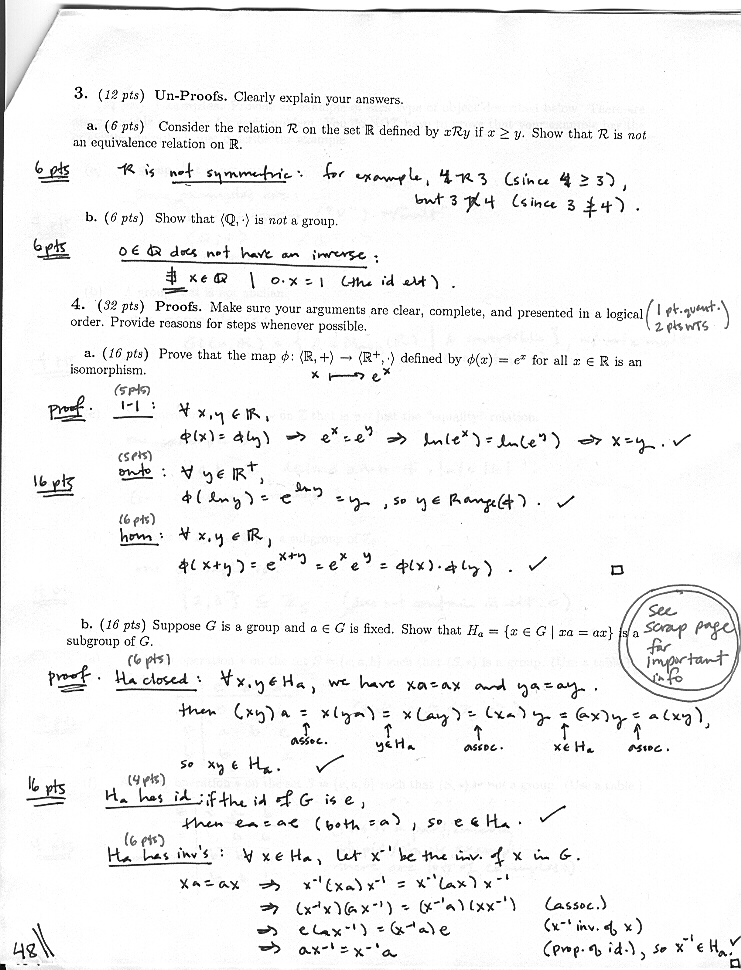 3. (12 pts) Un-Proofs. Clearly explain your answers.
a. (6 pts) Consider the relation R on the set ℝ defined by xRy if x ≥ y. Show that R is not
an equivalence relation on ℝ.
6 pts
R is not symmetric: for example, 4 R 3 (since 4 ≥ 3),
but 3 R̸ 4 (since 3 ≱ 4).
b. (6 pts) Show that ⟨ℚ, ·⟩ is not a group.
6 pts
0 ∈ ℚ does not have an inverse:
∄ x ∈ ℚ | 0·x = 1 (the id elt).
4. (32 pts) Proofs. Make sure your arguments are clear, complete, and presented in a logical
order. Provide reasons for steps whenever possible.
(1 pt. quant.
2 pts WTS)
a. (16 pts) Prove that the map ϕ: ⟨ℝ, +⟩ → ⟨ℝ⁺, ·⟩ defined by ϕ(x) = eˣ for all x ∈ ℝ is an
isomorphism.
x ↦ eˣ
(5 pts)
Proof. 1-1: ∀ x, y ∈ ℝ,
ϕ(x) = ϕ(y) ⇒ eˣ = eʸ ⇒ ln(eˣ) = ln(eʸ) ⇒ x = y. ✓
(5 pts)
16 pts
onto: ∀ y ∈ ℝ⁺,
ϕ(ln y) = e^(ln y) = y, so y ∈ Range(ϕ). ✓
(6 pts)
hom: ∀ x, y ∈ ℝ,
ϕ(x+y) = e^(x+y) = eˣ eʸ = ϕ(x)·ϕ(y). ✓ □
b. (16 pts) Suppose G is a group and a ∈ G is fixed. Show that Hₐ = {x ∈ G | xa = ax} is a
subgroup of G.
see
scrap page
for
important
info
(6 pts)
Proof. Ha closed: ∀ x, y ∈ Ha, we have xa = ax and ya = ay.
then (xy)a = x(ya) = x(ay) = (xa)y = (ax)y = a(xy),
↑ ↑ ↑ ↑ ↑
assoc. y ∈ Ha assoc. x ∈ Ha assoc.
so xy ∈ Ha. ✓
16 pts
(4 pts)
Ha has id: if the id of G is e,
then ea = ae (both = a), so e ∈ Ha. ✓
(6 pts)
Ha has inv's: ∀ x ∈ Ha, let x⁻¹ be the inv. of x in G.
xa = ax ⇒ x⁻¹(xa)x⁻¹ = x⁻¹(ax)x⁻¹
⇒ (x⁻¹x)(ax⁻¹) = (x⁻¹a)(xx⁻¹) (assoc.)
⇒ e(ax⁻¹) = (x⁻¹a)e (x⁻¹ inv. of x)
⇒ ax⁻¹ = x⁻¹a (prop. of id.), so x⁻¹ ∈ Ha. ✓ □
48